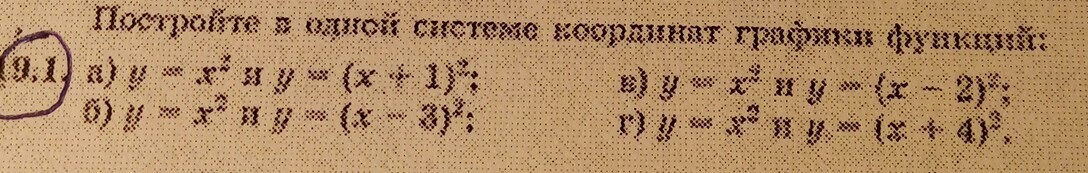 Постройте в одной системе координат графики функций:
19.1. а) y = x² и y = (x + 1)²; в) y = x² и y = (x − 2)²;
б) y = x² и y = (x − 3)²; г) y = x² и y = (x + 4)².